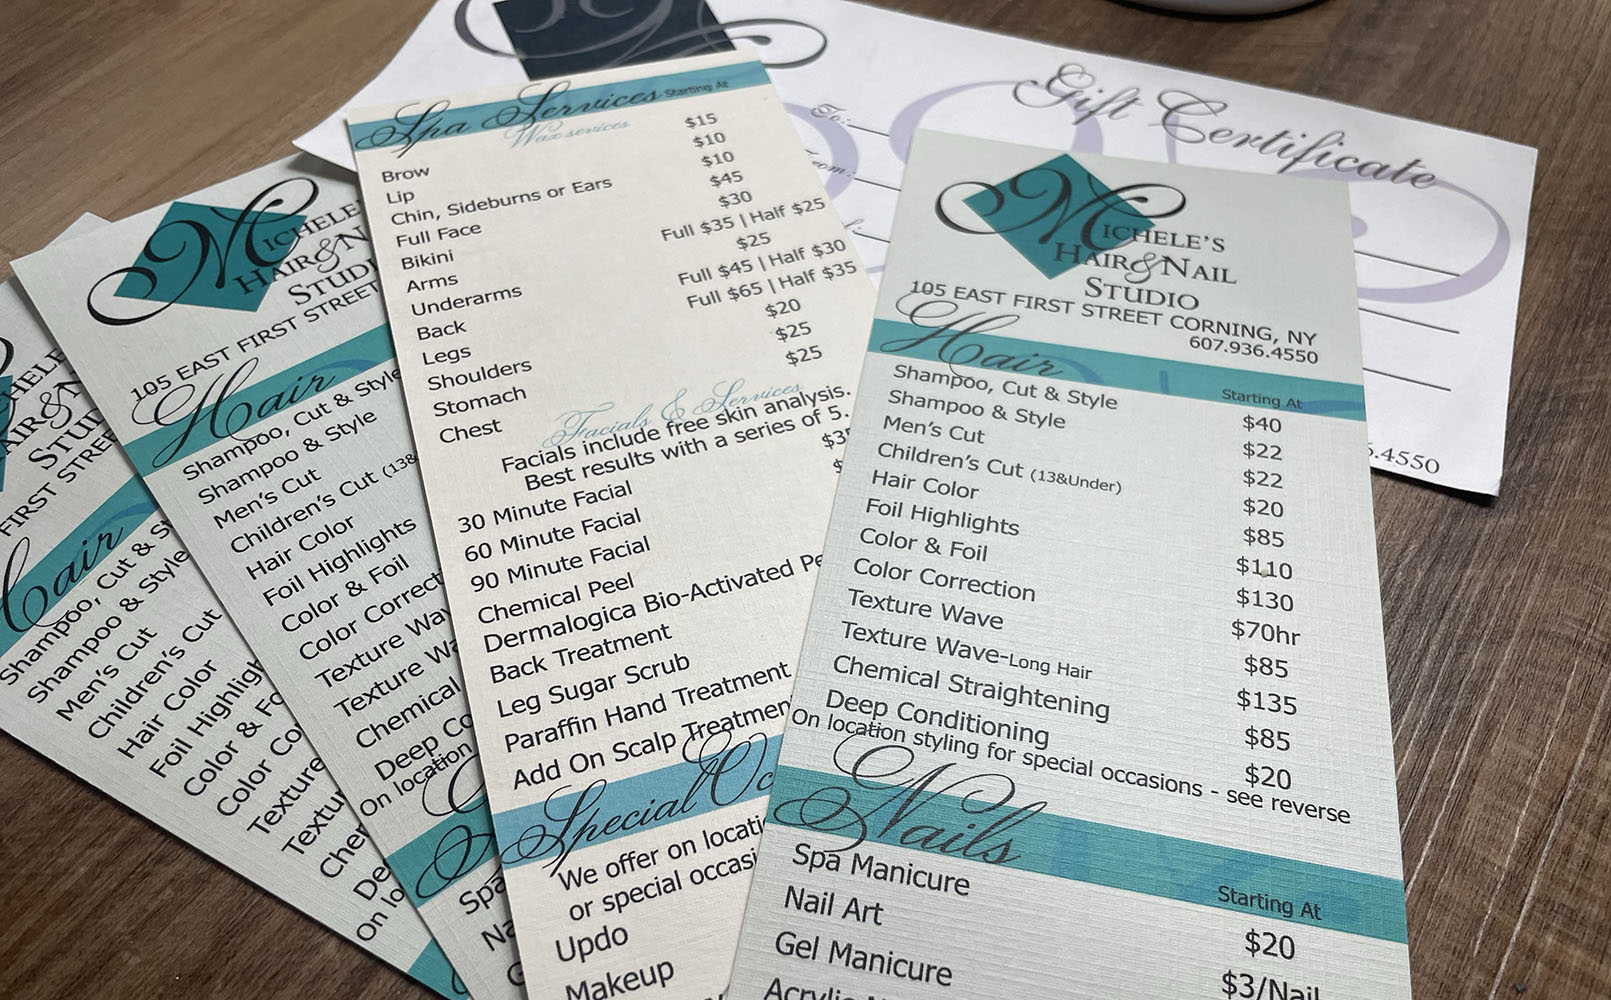 Gift Certificate
To:
5.4550
MICHELE
HAIR & N
STUDI
105 EAST FIRST STREET
Hair
Shampoo, Cut & Style
Shampoo & Style
Men's Cut
Children's Cut (13&
Hair Color
Foil Highlights
Color & Foil
Color Correct
Texture Wav
Texture Wa
Chemical
Deep Co
On location
Spa
Na
FIRST STREE
Hair
Shampoo, Cut & S
Shampoo & Style
Men's Cut
Children's Cut
Hair Color
Foil Highligh
Color & Fo
Color Co
Texture
Textur
Cher
De
On lo
Spa Services Starting At
Wax services
Brow $15
Lip $10
Chin, Sideburns or Ears $10
Full Face $45
Bikini $30
Arms Full $35 | Half $25
Underarms $25
Back Full $45 | Half $30
Legs Full $65 | Half $35
Shoulders $20
Stomach $25
Chest $25
Facials & Services
Facials include free skin analysis.
Best results with a series of 5.
30 Minute Facial
60 Minute Facial
90 Minute Facial
Chemical Peel
Dermalogica Bio-Activated Pe
Back Treatment
Leg Sugar Scrub
Paraffin Hand Treatment
Add On Scalp Treatmen
Special Oc
We offer on locati
or special occasi
Updo
Makeup
MICHELE'S
HAIR & NAIL
STUDIO
105 EAST FIRST STREET CORNING, NY
607.936.4550
Hair Starting At
Shampoo, Cut & Style $40
Shampoo & Style $22
Men's Cut $22
Children's Cut (13&Under) $20
Hair Color $85
Foil Highlights $110
Color & Foil $130
Color Correction $70hr
Texture Wave $85
Texture Wave-Long Hair $135
Chemical Straightening $85
Deep Conditioning $20
On location styling for special occasions - see reverse
Nails Starting At
Spa Manicure $20
Nail Art $3/Nail
Gel Manicure
Acrylic